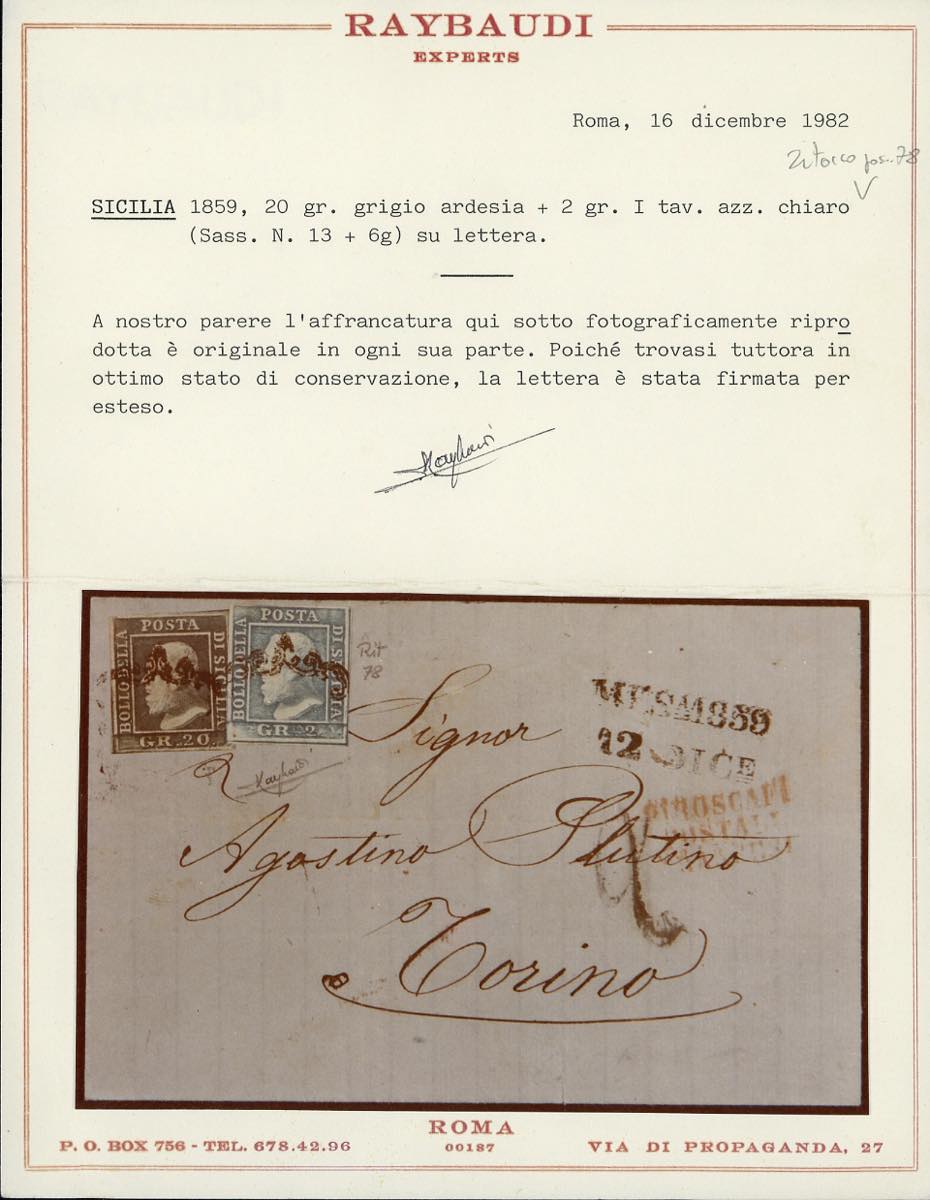 RAYBAUDI
EXPERTS
Roma, 16 dicembre 1982
ritocco pos. 78
V
SICILIA 1859, 20 gr. grigio ardesia + 2 gr. I tav. azz. chiaro
(Sass. N. 13 + 6g) su lettera.
A nostro parere l'affrancatura qui sotto fotograficamente ripro
dotta è originale in ogni sua parte. Poiché trovasi tuttora in
ottimo stato di conservazione, la lettera è stata firmata per
esteso.
Raybaudi
BOLLO DELLA POSTA DI SICILIA
GR. 20.
BOLLO DELLA POSTA DI SICILIA
GR. 2.
Rit
78
Raybaudi
1859
12 DICE
PIROSCAFI
POSTALI
2
Signor
Agostino Plutino
Torino
ROMA
00187
P. O. BOX 756 - TEL. 678.42.96
VIA DI PROPAGANDA, 27